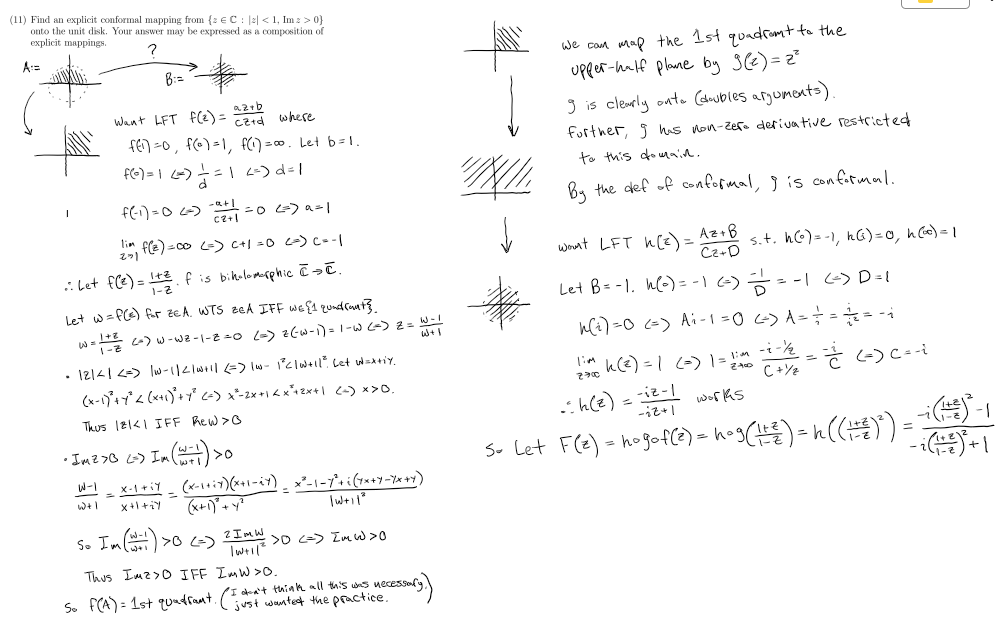 (11) Find an explicit conformal mapping from {z ∈ ℂ : |z| < 1, Im z > 0}
onto the unit disk. Your answer may be expressed as a composition of
explicit mappings.
?
A:=
B:=
Want LFT f(z) = (az+b)/(cz+d) where
f(-1)=0, f(0)=1, f(1)=∞. Let b=1.
f(0)=1 <=> 1/d = 1 <=> d=1
f(-1)=0 <=> (-a+1)/(cz+1) = 0 <=> a=1
lim z→1 f(z)=∞ <=> c+1=0 <=> c=-1
∴ Let f(z) = (1+z)/(1-z). f is biholomorphic ℂ̄→ℂ̄.
Let w=f(z) for z∈A. WTS z∈A IFF w∈{1 quadrant}.
w = (1+z)/(1-z) <=> w-wz-1-z=0 <=> z(-w-1)=1-w <=> z = (w-1)/(w+1)
• |z|<1 <=> |w-1|<|w+1| <=> |w-1|²<|w+1|². Let w=x+iy.
(x-1)²+y² < (x+1)²+y² <=> x²-2x+1 < x²+2x+1 <=> x>0.
Thus |z|<1 IFF Re w>0
• Im z>0 <=> Im((w-1)/(w+1))>0
(w-1)/(w+1) = (x-1+iy)/(x+1+iy) = (x-1+iy)(x+1-iy)/((x+1)²+y²) = (x²-1-y²+i(yx+y-yx+y))/|w+1|²
So Im((w-1)/(w+1))>0 <=> 2 Im w/|w+1|² >0 <=> Im w>0
Thus Im z>0 IFF Im w>0.
So f(A) = 1st quadrant. (I don't think all this was necessary, just wanted the practice.)
We can map the 1st quadrant to the
upper-half plane by g(z)=z²
g is clearly onto (doubles arguments).
Further, g has non-zero derivative restricted
to this domain.
By the def of conformal, g is conformal.
Want LFT h(z) = (Az+B)/(Cz+D) s.t. h(0)=-1, h(i)=0, h(∞)=1
Let B=-1. h(0)=-1 <=> -1/D = -1 <=> D=1
h(i)=0 <=> Ai-1=0 <=> A = 1/i = i/i² = -i
lim z→∞ h(z)=1 <=> 1 = lim z→∞ (-i-1/z)/(C+1/z) = -i/C <=> C=-i
∴ h(z) = (-iz-1)/(-iz+1) works
So Let F(z) = h∘g∘f(z) = h∘g((1+z)/(1-z)) = h(((1+z)/(1-z))²) = (-i((1+z)/(1-z))²-1)/(-i((1+z)/(1-z))²+1)